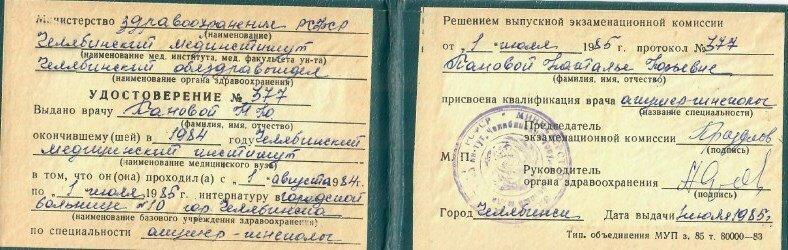 Министерство здравоохранения РСФСР
(наименование)
Челябинский мединститут
(наименование мед. института, мед. факультета ун-та)
Челябинский облздравотдел
(наименование органа здравоохранения)
УДОСТОВЕРЕНИЕ № 377
Выдано врачу Пановой Н Ю
(фамилия, имя, отчество)
окончившему(шей) в 1984 году Челябинский
медицинский институт
(наименование медицинского вуза)
в том, что он(она) проходил(а) с „1“ августа 1984г.
по „1“ июля 1985г. интернатуру в городской
больнице №10 гор Челябинска
(наименование базового учреждения здравоохранения)
по специальности акушер-гинеколог
Решением выпускной экзаменационной комиссии
от „1“ июля 1985 г. протокол № 377
Пановой Наталье Юрьевне
(фамилия, имя, отчество)
присвоена квалификация врача акушер-гинеколог
(название специальности)
Председатель
экзаменационной комиссии
(подпись)
М П
Руководитель
органа здравоохранения
(подпись)
Город Челябинск Дата выдачи 1 июля 1985г.
Тип. объединения МУП з. 85 т. 80000—83